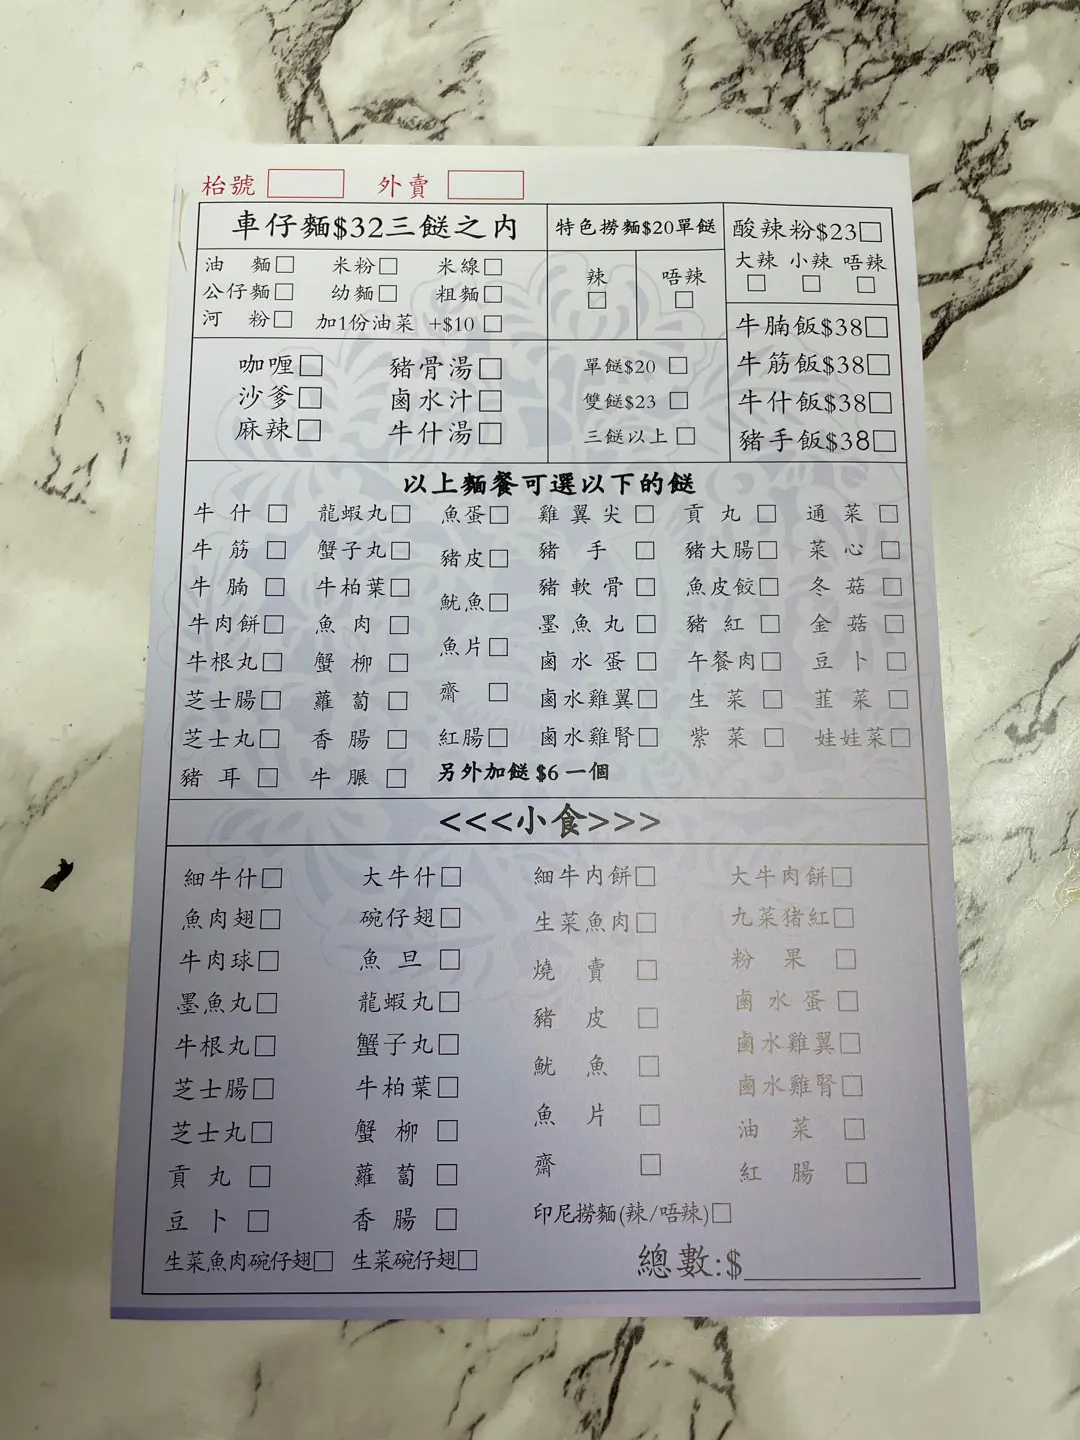 枱號 外賣
車仔麵$32三餸之內 特色撈麵$20單餸 酸辣粉$23□
油 麵□ 米粉□ 米線□ 辣 唔辣 大辣 小辣 唔辣
公仔麵□ 幼麵□ 粗麵□ □ □ □ □ □
河 粉□ 加1份油菜 +$10 □ 牛腩飯$38□
咖喱□ 豬骨湯□ 單餸$20 □ 牛筋飯$38□
沙爹□ 鹵水汁□ 雙餸$23 □ 牛什飯$38□
麻辣□ 牛什湯□ 三餸以上□ 豬手飯$38□
以上麵餐可選以下的餸
牛什□ 龍蝦丸□ 魚蛋□ 雞翼尖□ 貢丸□ 通菜□
牛筋□ 蟹子丸□ 豬皮□ 豬手□ 豬大腸□ 菜心□
牛腩□ 牛柏葉□ 魷魚□ 豬軟骨□ 魚皮餃□ 冬菇□
牛肉餅□ 魚肉□ 魚片□ 墨魚丸□ 豬紅□ 金菇□
牛根丸□ 蟹柳□ 齋□ 鹵水蛋□ 午餐肉□ 豆卜□
芝士腸□ 蘿蔔□ 紅腸□ 鹵水雞翼□ 生菜□ 韮菜□
芝士丸□ 香腸□ 鹵水雞腎□ 紫菜□ 娃娃菜□
豬耳□ 牛𦟌□ 另外加餸 $6 一個
<<<小食>>>
細牛什□ 大牛什□ 細牛內餅□ 大牛肉餅□
魚肉翅□ 碗仔翅□ 生菜魚肉□ 九菜猪紅□
牛肉球□ 魚旦□ 燒賣□ 粉果□
墨魚丸□ 龍蝦丸□ 豬皮□ 鹵水蛋□
牛根丸□ 蟹子丸□ 魷魚□ 鹵水雞翼□
芝士腸□ 牛柏葉□ 魚片□ 鹵水雞腎□
芝士丸□ 蟹柳□ 齋□ 油菜□
貢丸□ 蘿蔔□ 紅腸□
豆卜□ 香腸□ 印尼撈麵(辣/唔辣)□
生菜魚肉碗仔翅□ 生菜碗仔翅□ 總數:$